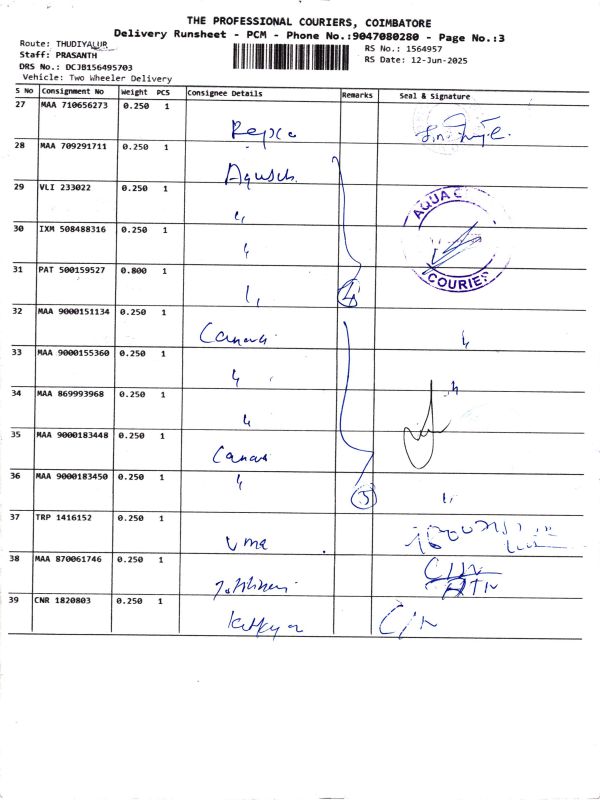 THE PROFESSIONAL COURIERS, COIMBATORE
Delivery Runsheet - PCM - Phone No.:9047080280 - Page No.:3
Route: THUDIYALUR
RS No.: 1564957
Staff: PRASANTH
RS Date: 12-Jun-2025
DRS No.: DCJB156495703
Vehicle: Two Wheeler Delivery
S No Consignment No Weight PCS Consignee Details Remarks Seal & Signature
27 MAA 710656273 0.250 1 Repco
28 MAA 709291711 0.250 1
29 VLI 233022 0.250 1 "
AQUA
30 IXM 508488316 0.250 1 "
COURIER
31 PAT 500159527 0.800 1 " 4
32 MAA 9000151134 0.250 1 Canara "
33 MAA 9000155360 0.250 1 "
34 MAA 869993968 0.250 1 " "
35 MAA 9000183448 0.250 1 Canara
36 MAA 9000183450 0.250 1 " 5 "
37 TRP 1416152 0.250 1 Uma
38 MAA 870061746 0.250 1
39 CNR 1820803 0.250 1